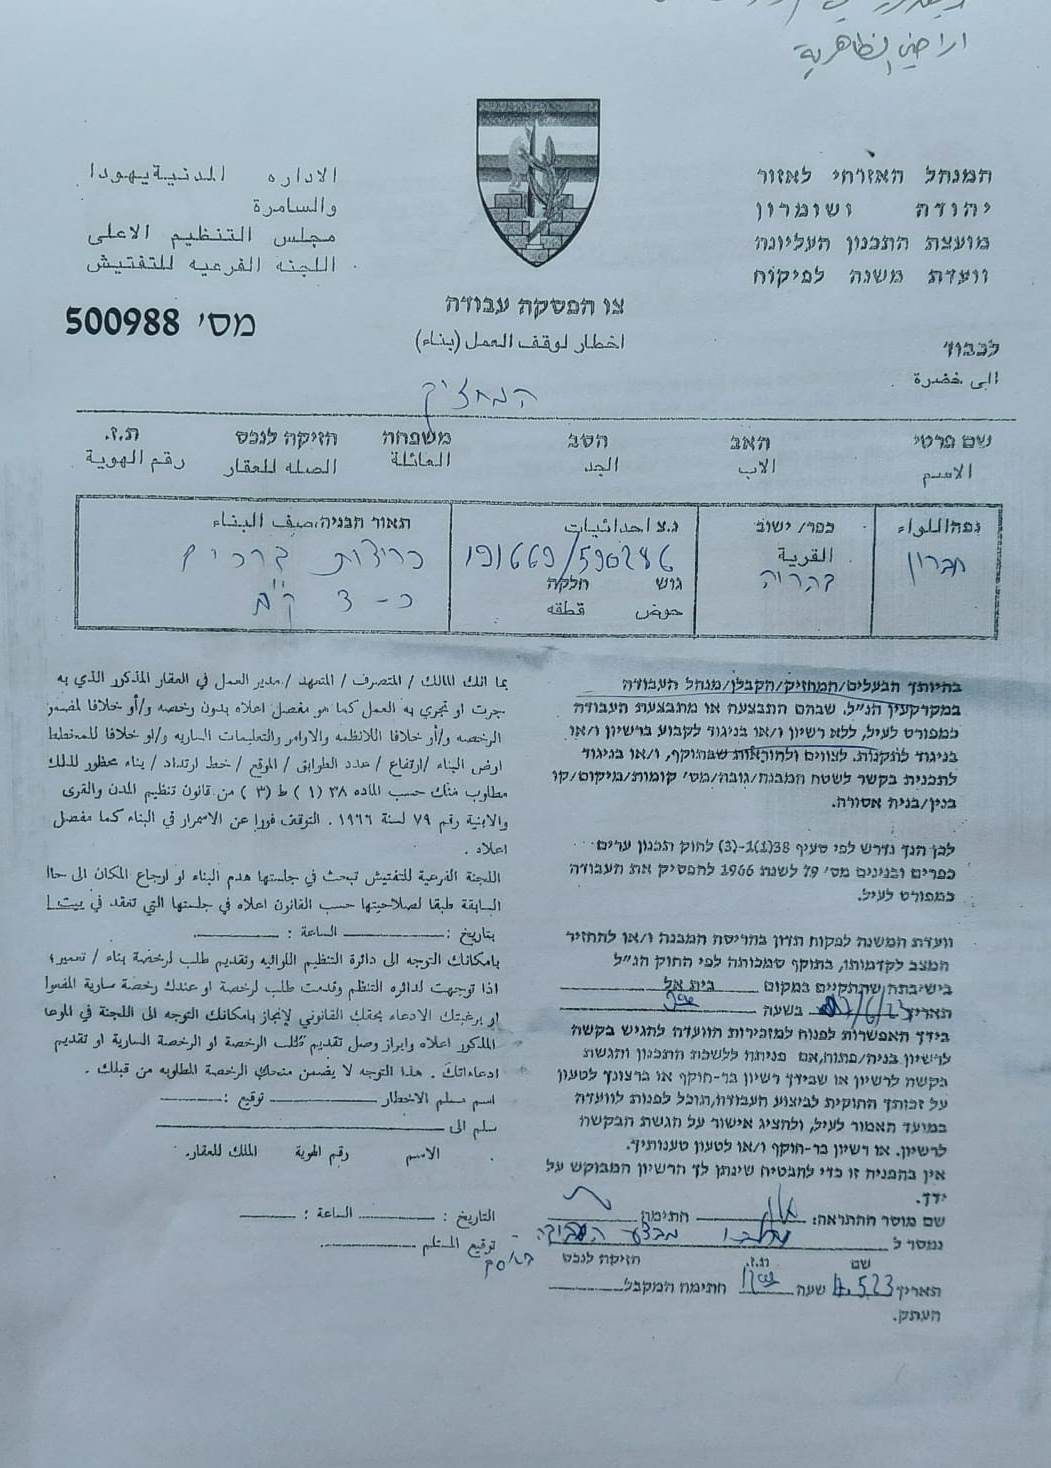 اراضي الظاهرية
המנהל האזרחי לאזור
יהודה ושומרון
מועצת התכנון העליונה
וועדת משנה לפיקוח
الاداره المدنية يهودا
والسامرة
مجلس التنظيم الاعلى
اللجنه الفرعيه للتفتيش
מס' 500988
צו הפסקה עבודה
اخطار لوقف العمل (بناء)
לכבוד
الى حضرة
המחזיק
שם פרטי האב הסב משפחה חזיקה לנכס ת.ז.
الاسم الاب الجد العائلة الصله للعقار رقم الهوية
נפה/اللواء כפר/ישוב נ.צ احداثيات תאור הבניה/صيف البناء
חברון القرية 191669/590286 כריצות ברכים
דהריה גוש חלקה
حوض قطقه כ-3 ק"מ
בהיותך הבעלים/המחזיק/הקבלן/מנהל העבודה
במקרקעין הנ"ל, שבהם התבצעה או מתבצעת העבודה
כמפורט לעיל, ללא רשיון ו/או בניגוד לקבוע ברשיון ו/או
בניגוד לתקנות, לצווים ולהוראות שבתוקף, ו/או בניגוד
לתכנית בקשר לשטח המבנה/גובה/מס' קומות/מיקום/קו
בנין/בניה אסורה.
לכן הנך נדרש לפי סעיף 38(1)ו-(3) לחוק תכנון ערים
כפרים ובנינים מס' 79 לשנת 1966 להפסיק את העבודה
כמפורט לעיל.
וועדת המשנה לפקוח תדון בהריסת המבנה ו/או להחזיר
המצב לקדמותו, בתוקף סמכותה לפי החוק הנ"ל
בישיבתה שתתקיים במקום בית אל
תאריך בשעה
בידך האפשרות לפנות למזכירות הוועדה להגיש בקשה
לרשיון בניה/פתוח, אם פנית ללשכת התכנון והגשת
בקשה לרשיון או שבידך רשיון בר-תוקף או ברצונך לטעון
על זכותך החוקית לביצוע העבודה, תוכל לפנות לוועדה
במועד האמור לעיל, ולהציג אישור על הגשת הבקשה
לרשיון. או רשיון בר-תוקף ו/או לטעון טענותיך.
אין בהפניה זו כדי להבטיח שינתן לך הרשיון המבוקש על
ידך.
שם מוסר ההתראה: חתימה
נמסר ל
שם ת.ז. חזיקה לנכס
תאריך 4.5.23 שעה חתימה המקבל
העתק.
بما انك المالك / المتصرف / المتعهد / مدير العمل في العقار المذكور الذي به
جرت او تجري به العمل كما هو مفصل اعلاه بدون رخصه و/أو خلافا لمضمون
الرخصه و/أو خلافا للانظمه والاوامر والتعليمات الساريه و/او خلافا للمخطط
ارض البناء /ارتفاع / عدد الطوابق / الموقع / خط ارتداد / بناء محظور لذلك
مطلوب منك حسب الماده ٣٨ (١) ط (٣) من قانون تنظيم المدن والقرى
والابنية رقم ٧٩ لسنة ١٩٦٦ . التوقف فورا عن الاسمرار في البناء كما مفصل
اعلاه .
اللجنة الفرعية للتفتيش تبحث في جلستها هدم البناء او ارجاع المكان الى
السابقة طبقا لصلاحيتها حسب القانون اعلاه في جلستها التي تعقد في
بتاريخ : الساعة :
بامكانك التوجه الى دائرة التنظيم اللوائيه وتقديم طلب لرخصة بناء / تعمير؛
اذا توجهت لدائره التنظم وقدمت طلب لرخصة او عندك رخصة سارية المفعول
او برغبتك الادعاء بحقك القانوني لإنجاز بامكانك التوجه الى اللجنة في
المذكور اعلاه وابراز وصل تقديم طلب الرخصة او الرخصة السارية او تقديم
ادعاءاتك . هذا التوجه لا يضمن منحك الرخصة المطلوبه من قبلك .
اسم مسلم الاخطار توقيع :
سلم الى
الاسم رقم الهوية الملك للعقار.
التاريخ : الساعة :
توقيع المستلم